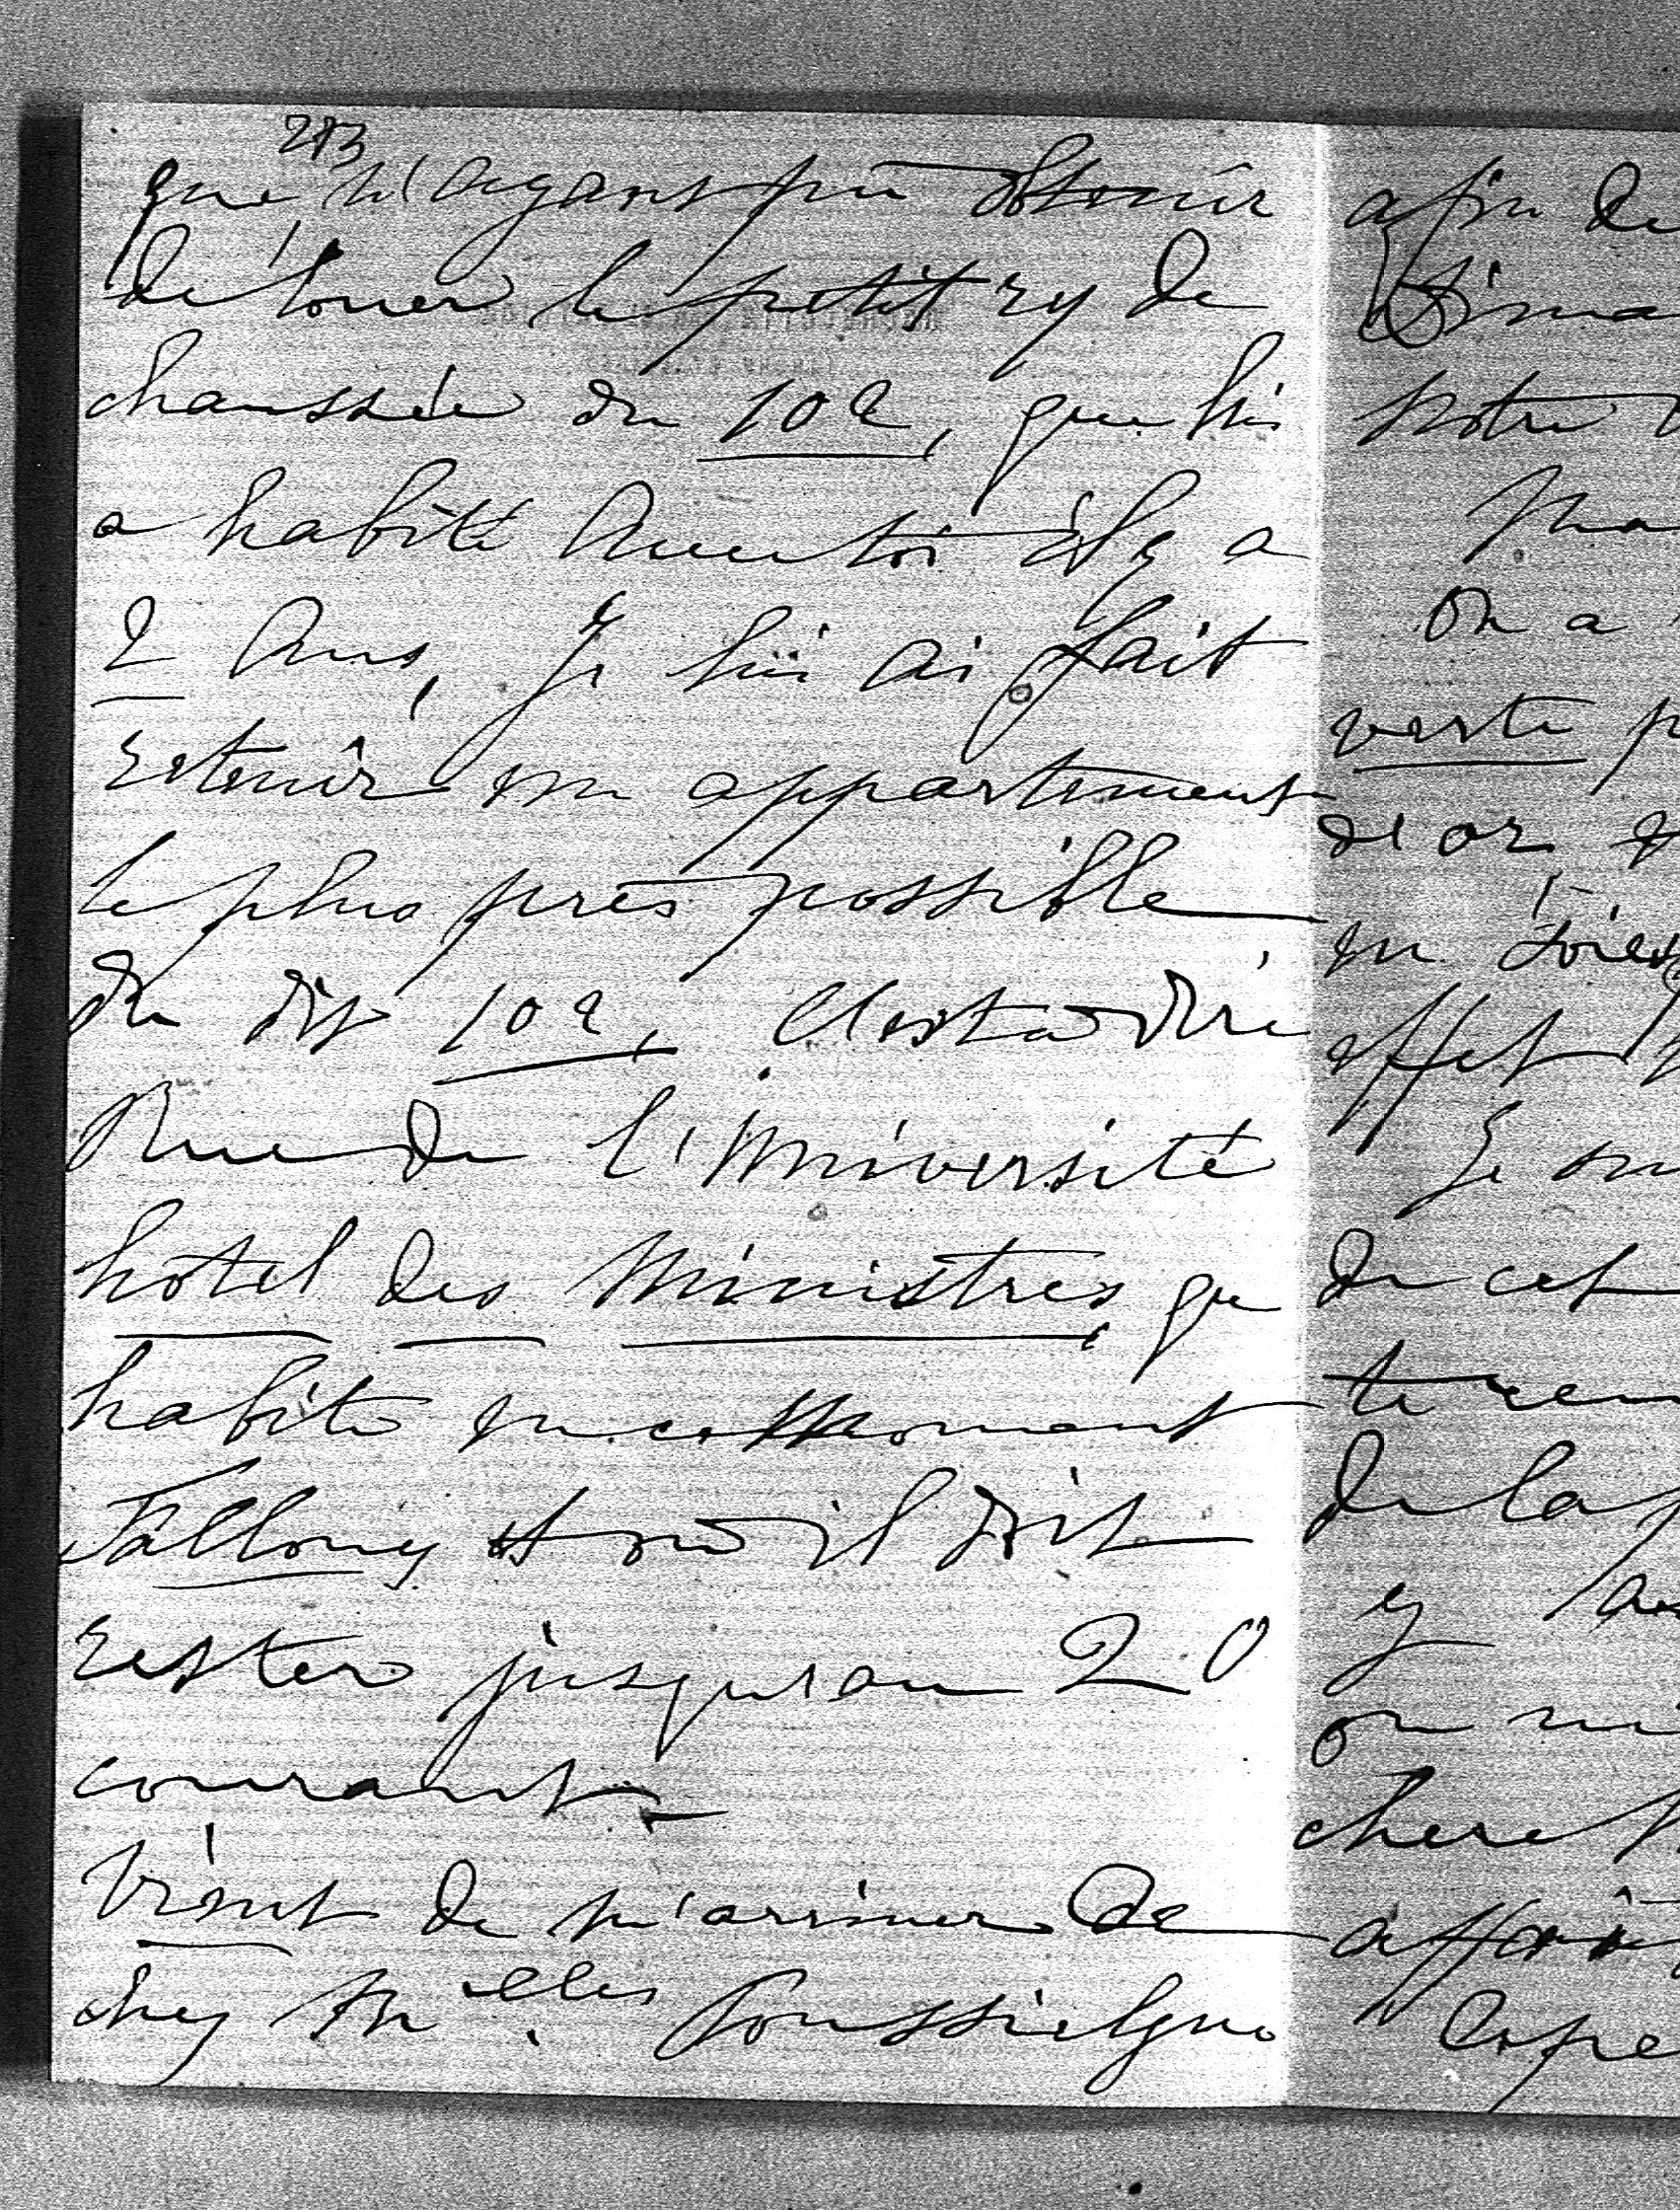 213
que n'ayant pu obtenir
de louer le petit rez de
chaussée du 102, que lui
a habité avec toi il y a
2 ans, je lui ai fait
retenir un appartement
le plus près possible
du dit 102, c'est à dire
Rue de l'Université
hôtel des Ministres, que
habite en ce moment
Falloux et où il doit
rester jusqu'au 20
courant.
Vient de m'arriver de
chez Melles Poussielgue
afin de
notre
on a
verte
d'or
en
effet
Je
de cet
te
de la
y
on